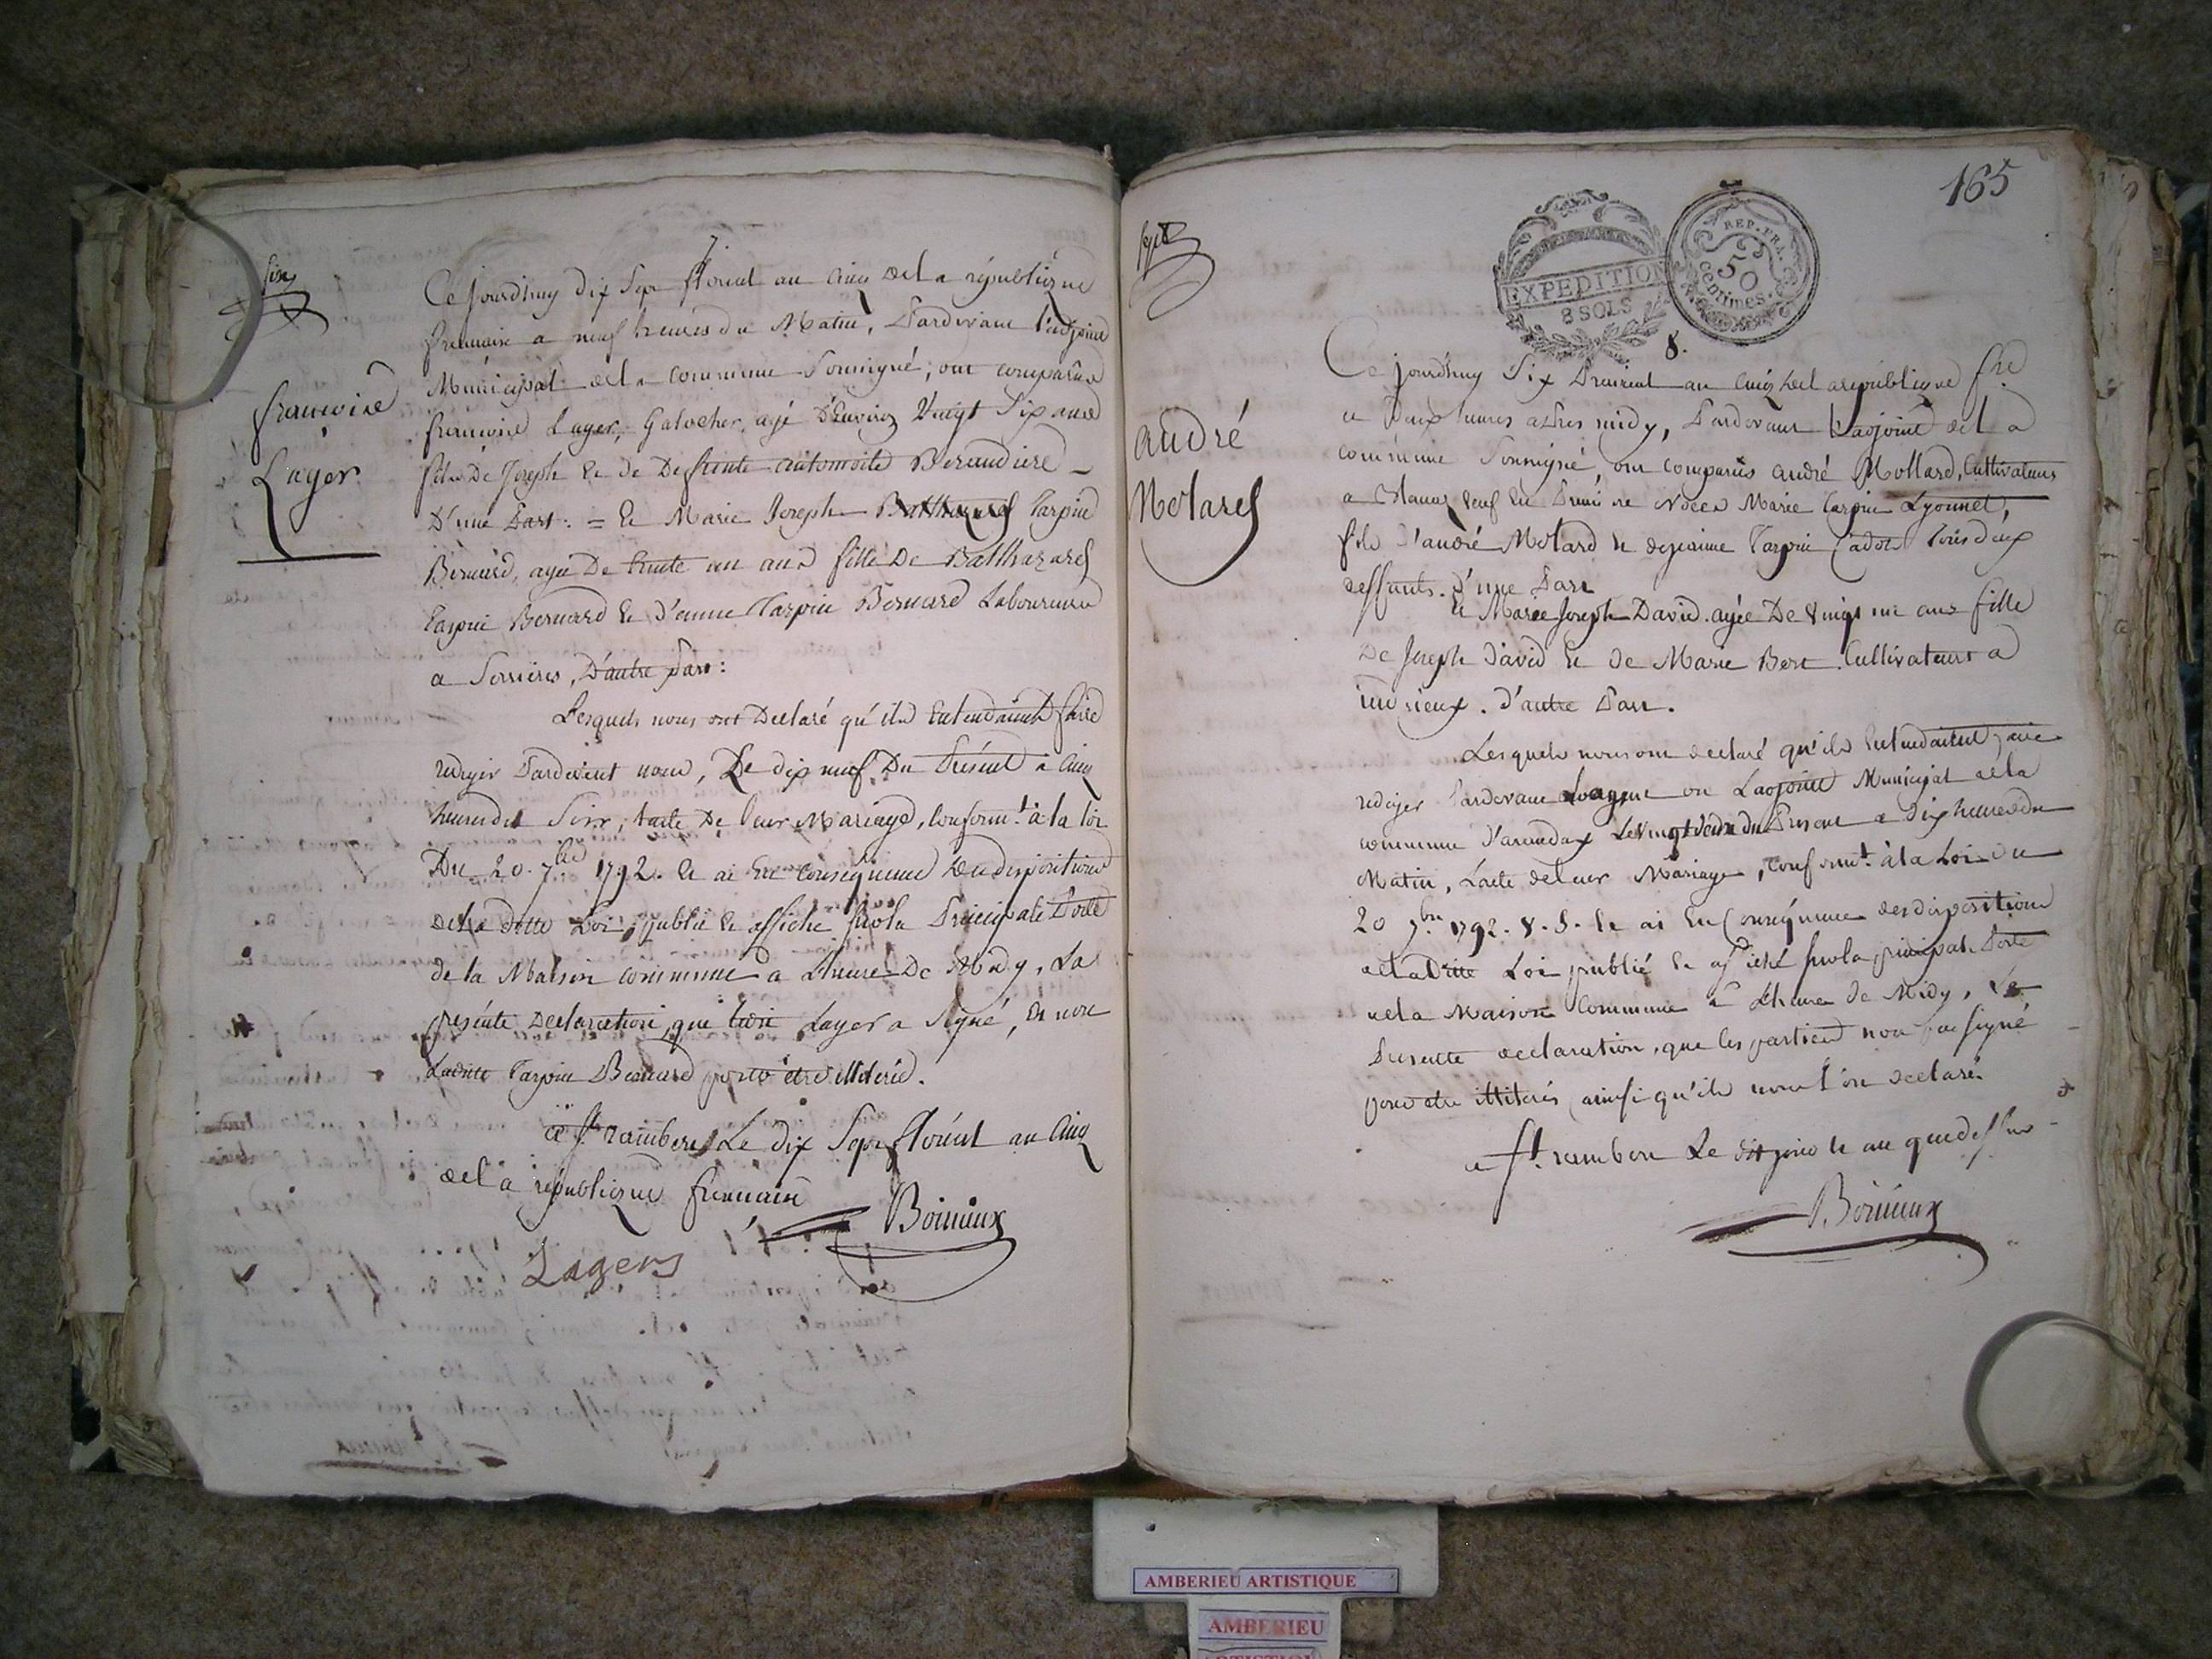 six
francoise
Layer
7.
Ce jourd'huy dix Sept floreal an Cinq de la république
francaise a neuf heures du Matin, Pardevant l'adjoint
Municipal de la commune Soussigné; ont comparûs
francoise Layer, Galocher, agé d'Environ Vingt Six ans
fils De Joseph Et de Deffunte Beraudiere
D'une Part: = Et Marie Joseph Tarpin
Bernard, agée De trente un ans fille De Balthazard
Tarpin Bernard Et d'anne Tarpin Bernard Laboureurs
a Serrieres, D'autre part:
Lesquels nous ont Déclaré qu'ils Entendaient faire
rediger Pardevant nous, Le dix neuf Du Présent a Cinq
heures du Soir, l'acte De leur Mariage, Conformt. à la loi
Du 20. 7bre 1792. Et ai En Consequence des dispositions
de la dette Loi, publié Et affiche sur la Principale Porte
de la Maison commune a L'heure De Midy, La
presente Declaration, que Layer a Signé, Et non
Ladite Tarpin Bernard pour être illiterée.
a St. rambert Le dix Sept floréal an Cinq
de la république francaise
Boinieux
Layers
165
sept
EXPEDITION
8 SOLS
REP. FRA.
50
centimes.
andré
Molard
8.
Ce jourd'huy Six Prairial an Cinq de la republique fse
a Deux heures après midy, Pardevant L'adjoint de la
commune Soussigné, ont comparûs andré Mollard, Cultivateur
a veuf En Premiere Noces Marie Tarpin Lyonnet,
fils d'andré Molard Et Tarpin Cadot tous deux
deffunts. d'une Part
Et Marie Joseph David. agée De Vingt un ans fille
De Joseph David Et de Marie Bert Cultivateurs a
indrieux. d'autre Part.
Lesquels nous ont declaré qu'ils Entendaient faire
rediger Pardevant L'agent ou L'adjoint Municipal de la
commune d'arandas Le vingt du Present a Dix heures du
Matin, L'acte de leur Mariage, Conformt. à la Loi du
20 7bre 1792. V. S. Et ai En Consequence des dispositions
de la Dite Loi publié Et affiché sur la principale Porte
de la Maison Commune a L'heure de Midy, La
Presente declaration, que les parties n'ont pas signé
pour etre illiterés ainsi qu'ils nous l'on declaré.
a St. rambert Le dit jour Et an que dessus
Boinieux
AMBERIEU ARTISTIQUE
AMBERIEU